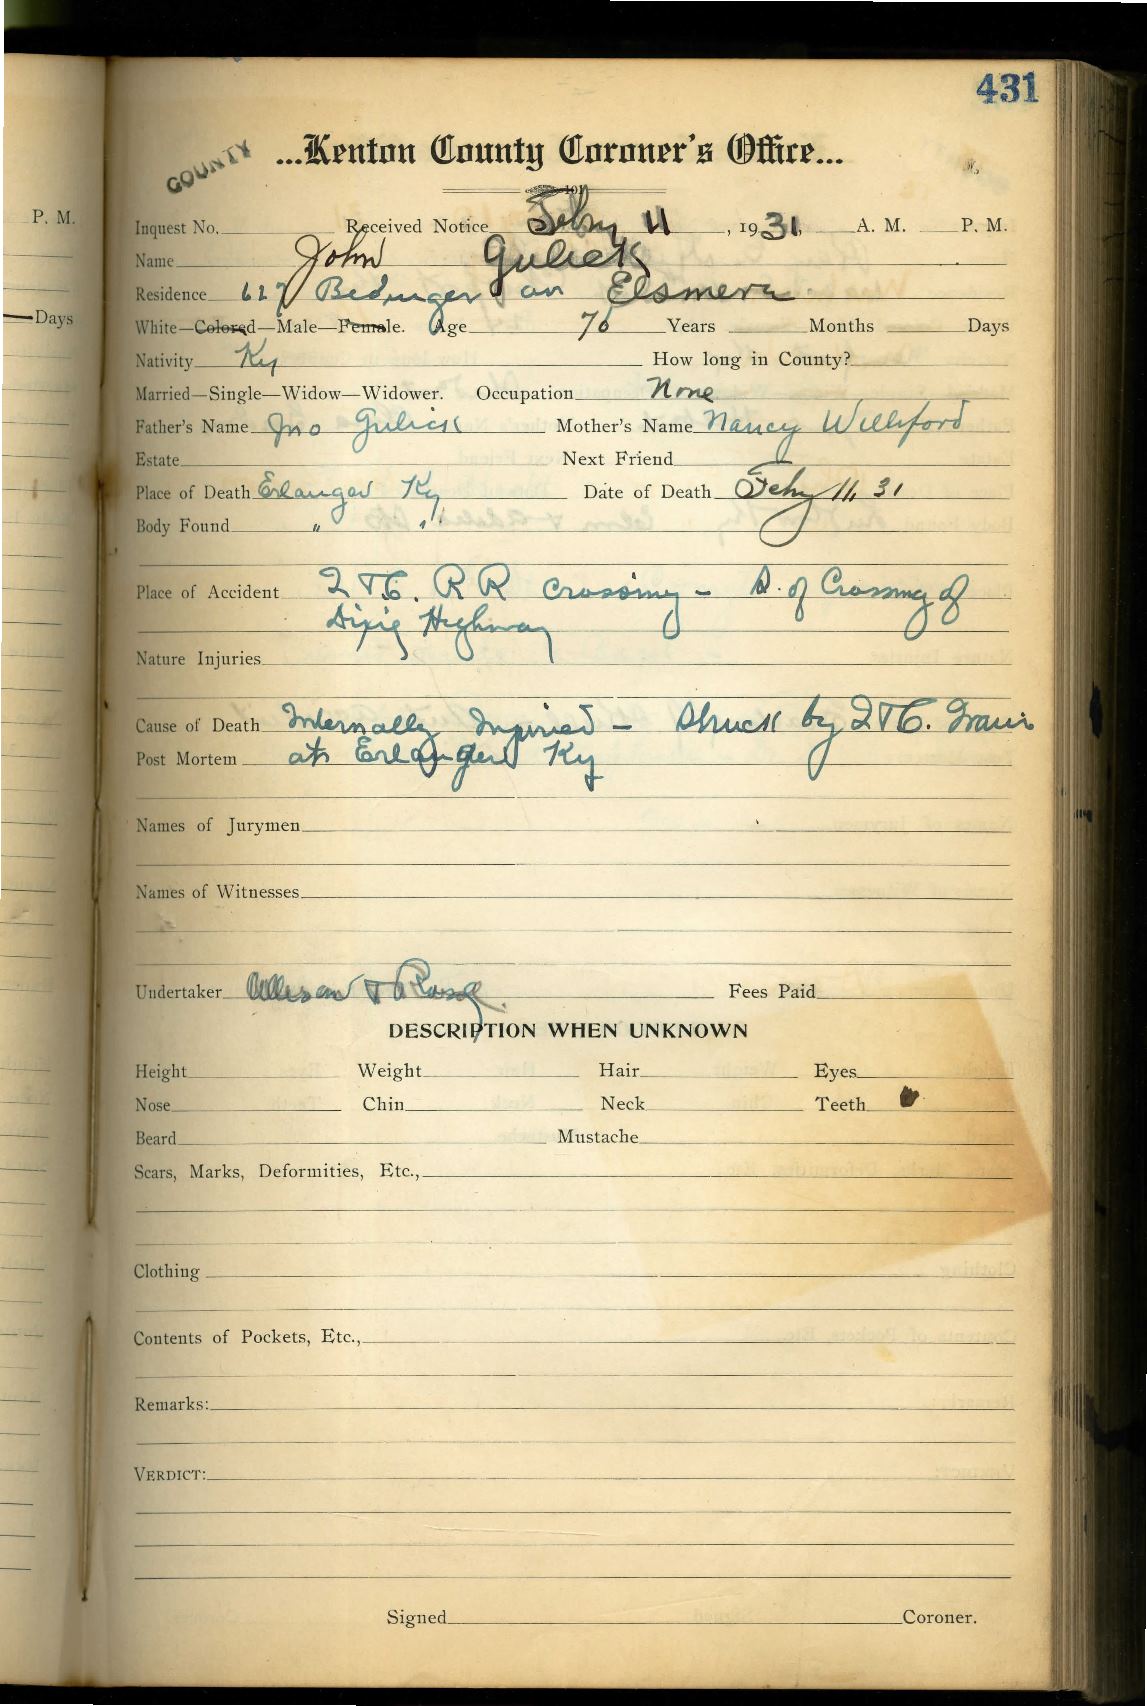 431
COUNTY
...Kenton County Coroner's Office...
P. M.
Inquest No. Received Notice Feby 11, 1931, A. M. P. M.
Name John Gulick
Residence 627 Bedinger av Elsmere
Days
White—Colored—Male—Female. Age 76 Years Months Days
Nativity Ky How long in County?
Married—Single—Widow—Widower. Occupation None
Father's Name Jno Gulick Mother's Name Nancy Williford
Estate Next Friend
Place of Death Erlanger Ky Date of Death Feby 11, 31
Body Found " "
Place of Accident R R Crossing — S. of Crossing of
Dixie Highway
Nature Injuries
Cause of Death Internally Injured — Struck by Train
Post Mortem at Erlanger Ky
Names of Jurymen
Names of Witnesses
Undertaker Allison & Rose Fees Paid
DESCRIPTION WHEN UNKNOWN
Height Weight Hair Eyes
Nose Chin Neck Teeth
Beard Mustache
Scars, Marks, Deformities, Etc.,
Clothing
Contents of Pockets, Etc.,
Remarks:
VERDICT:
Signed Coroner.